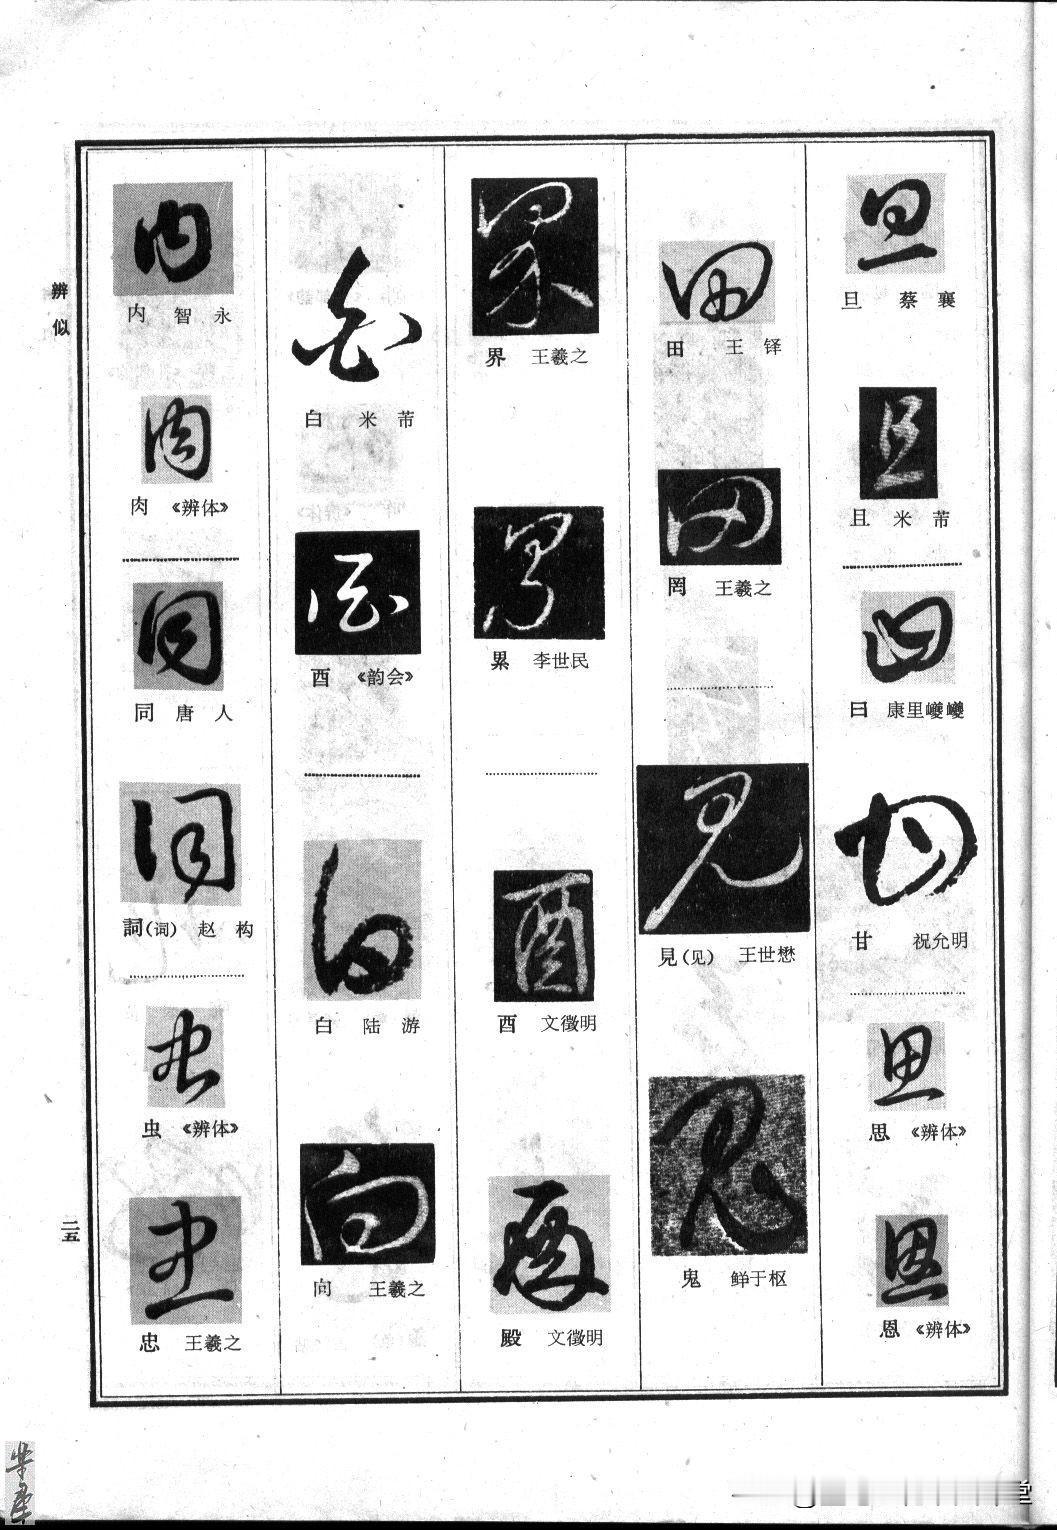 旦 蔡襄
且 米芾
曰 康里巎巎
甘 祝允明
思 《辨体》
恩 《辨体》
田 王铎
罔 王羲之
見(见) 王世懋
鬼 鲜于枢
界 王羲之
累 李世民
酉 文徵明
殿 文徵明
白 米芾
酉 《韵会》
白 陆游
向 王羲之
内 智永
肉 《辨体》
同 唐人
詞(词) 赵构
虫 《辨体》
忠 王羲之
辨似
二五